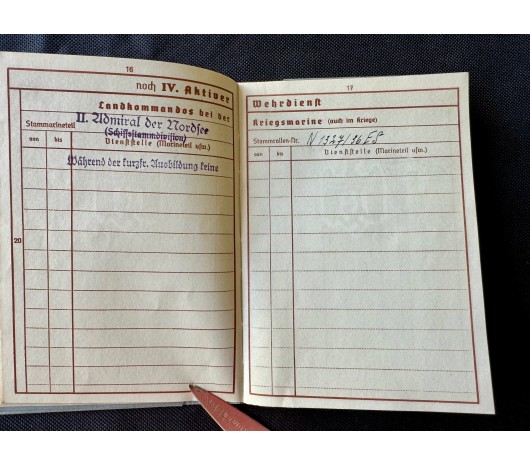 16
noch IV. Aktiver
Landkommandos bei der
Stammarineteil II. Admiral der Nordsee
(Schiffsstammdivision)
von bis Dienststelle (Marineteil usw.)
Während der kurzfr. Ausbildung keine
20
17
Wehrdienst
Kriegsmarine (auch im Kriege)
Stammrollen-Nr. N 1327/36 ES
von bis Dienststelle (Marineteil usw.)